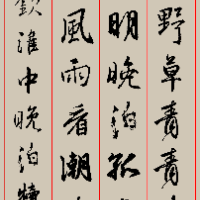 野草青青
明晚泊孤
風雨看潮
欽淮中晚泊犢